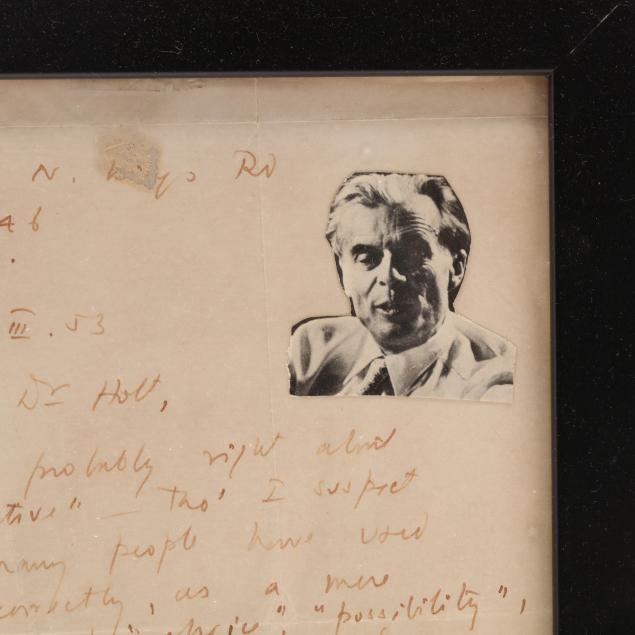 N. Kings Rd
46
III . 53
Dr Holt,
probably right about
tive" — tho' I suspect
many people have used
correctly, as a mere
"choice", "possibility",